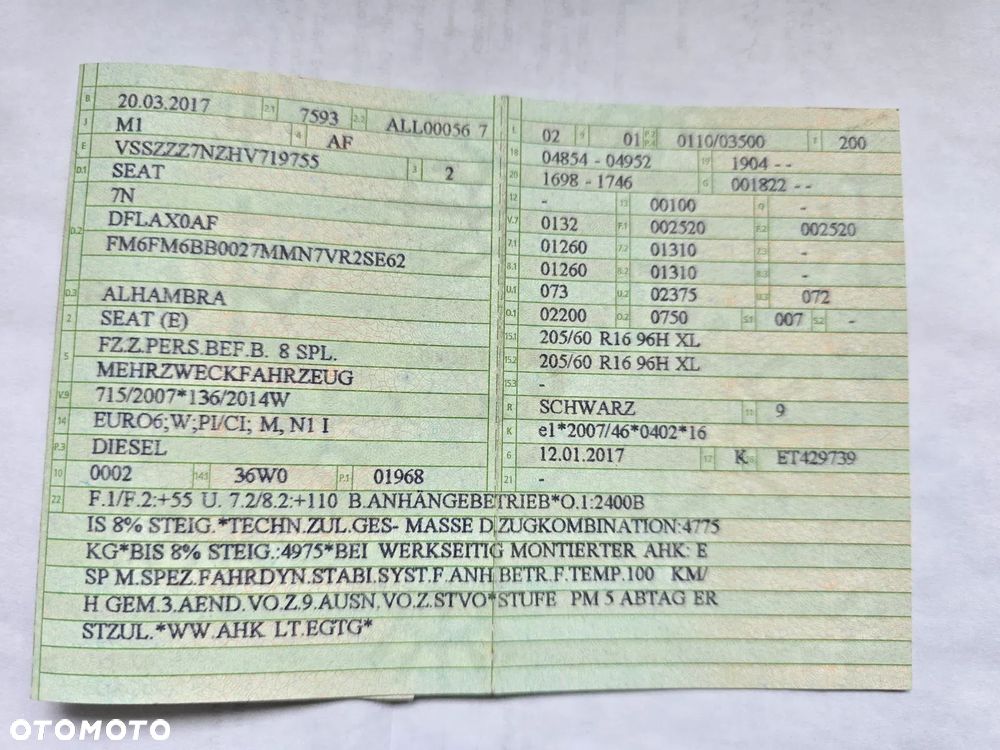 B 20.03.2017 2.1 7593 2.2 ALL00056 7
J M1 4 AF
E VSSZZZ7NZHV719755 3 2
D.1 SEAT
7N
D.2 DFLAX0AF
FM6FM6BB0027MMN7VR2SE62
D.3 ALHAMBRA
2 SEAT (E)
5 FZ.Z.PERS.BEF.B. 8 SPL.
MEHRZWECKFAHRZEUG
V.9 715/2007*136/2014W
14 EURO6;W;PI/CI; M, N1 I
P.3 DIESEL
10 0002 14.1 36W0 P.1 01968
L 02 9 01 P.2 P.4 0110/03500 T 200
18 04854 - 04952 19 1904 - -
20 1698 - 1746 G 001822 - -
12 - 13 00100 Q -
V.7 0132 F.1 002520 F.2 002520
7.1 01260 7.2 01310 7.3 -
8.1 01260 8.2 01310 8.3 -
U.1 073 U.2 02375 U.3 072
O.1 02200 O.2 0750 S.1 007 S.2 -
15.1 205/60 R16 96H XL
15.2 205/60 R16 96H XL
15.3 -
R SCHWARZ 11 9
K e1*2007/46*0402*16
6 12.01.2017 17 K 16 ET429739
21 -
22 F.1/F.2:+55 U. 7.2/8.2:+110 B.ANHÄNGEBETRIEB*O.1:2400B
IS 8% STEIG.*TECHN.ZUL.GES- MASSE D.ZUGKOMBINATION:4775
KG*BIS 8% STEIG.:4975*BEI WERKSEITIG MONTIERTER AHK: E
SP M.SPEZ.FAHRDYN.STABI.SYST.F.ANH.BETR.F.TEMP.100 KM/
H GEM.3.AEND.VO.Z.9.AUSN.VO.Z.STVO*STUFE PM 5 ABTAG ER
STZUL.*WW.AHK LT.EGTG*
OTOMOTO